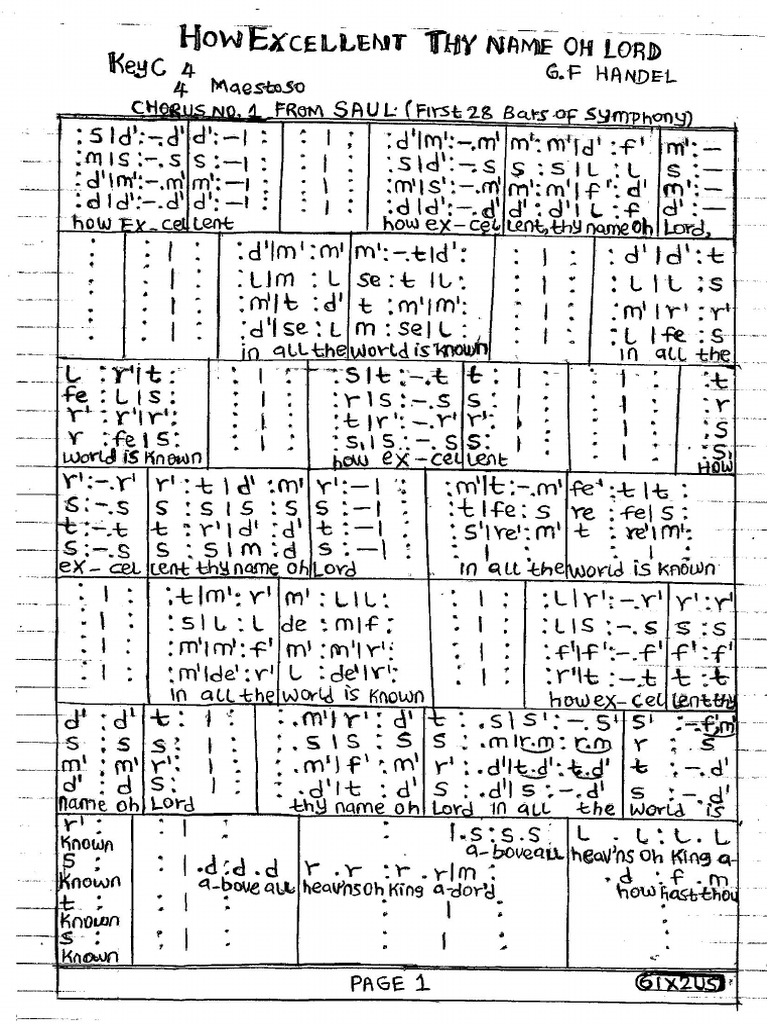 HOW EXCELLENT THY NAME OH LORD
Key C 4
4 Maestoso
G.F HANDEL
CHORUS NO. 1 FROM SAUL. (First 28 Bars of Symphony)
:s|d':-.d'|d':-|: :|: :d'|m':-.m'|m':m'|d':f'|m':-
:m|s:-.s|s:-|: :|: :s|d':-.s|s:s|L:L|s:-
:d'|m':-.m'|m':-|: :|: :m'|s':-.m'|m':m'|f':d'|m':-
:d'|d':-.d'|d':-|: :|: :d|d':-.d'|d':d'|L:f|d':-
how Ex-cellent how ex-cellent, thy name oh Lord,
: :|: :d'|m':m'|m':-t|d': :|: :d'|d':t
: :|: :L|m:L|se:t|L: :|: :L|t:s
: :|: :m'|t:d'|t:m'|m': :|: :m'|r':r'
: :|: :d'|se:L|m:se|L: :|: :L|fe:s
in all the world is known in all the
L:r'|t: :|: :s|t:-.t|t: :|: :t
fe:L|s: :|: :r|s:-.s|s: :|: :r
r':r'|r': :|: :t|r':-.r'|r': :|: :s
r:fe|s: :|: :s,|s:-.s|s: :|: :s,
world is known how ex-cellent How
r':-.r'|r':t|d':m'|r':-|: :m'|t:-.m'|fe':t|t:
s:-.s|s:s|s:s|s:-|: :t|fe:s|re:fe|s:
t:-.t|t:r'|d':d'|t:-|: :s'|re':m'|t:re'|m':
s:-.s|s:s|m:d|s:-|: :|: :|:
ex-cellent thy name oh Lord in all the world is known
:|: :t|m':r'|m':L|L: :|: :L|r':-.r'|r':r'
:|: :s|L:L|de:m|f: :|: :L|s:-.s|s:s
:|: :m'|m':f'|m':m'|r': :|: :f'|f':-.f'|f':f'
:|: :m'|de':r'|L:de'|r': :|: :r'|t:-.t|t:t
in all the world is known how ex-cellent thy
d':d'|t:|: :.m'|r':d'|t:.s|s':-.s'|s':-f'.m'
s:s|s:|: :.s|s:s|s:.m|r.m:r.m|r:s
m':m'|r':|: :.m'|f':m'|r':.d'|t.d':t.d'|t:-.d'
d':d|s:|: :.d'|t:d'|s:.d'|s:-.d'|s:-.d'
name oh Lord thy name oh Lord in all the world is
r': :|: |.s:s.s|L.L:L.L
known a-bove all heav'ns oh King a-
s: |.d:d.d|r.r:r.r|m: .d:f.m
known a-bove all heav'ns oh King a-dor'd how hast thou
t: :|: :|: :
known
s: :|: :|: :
known
PAGE 1
GIX2US